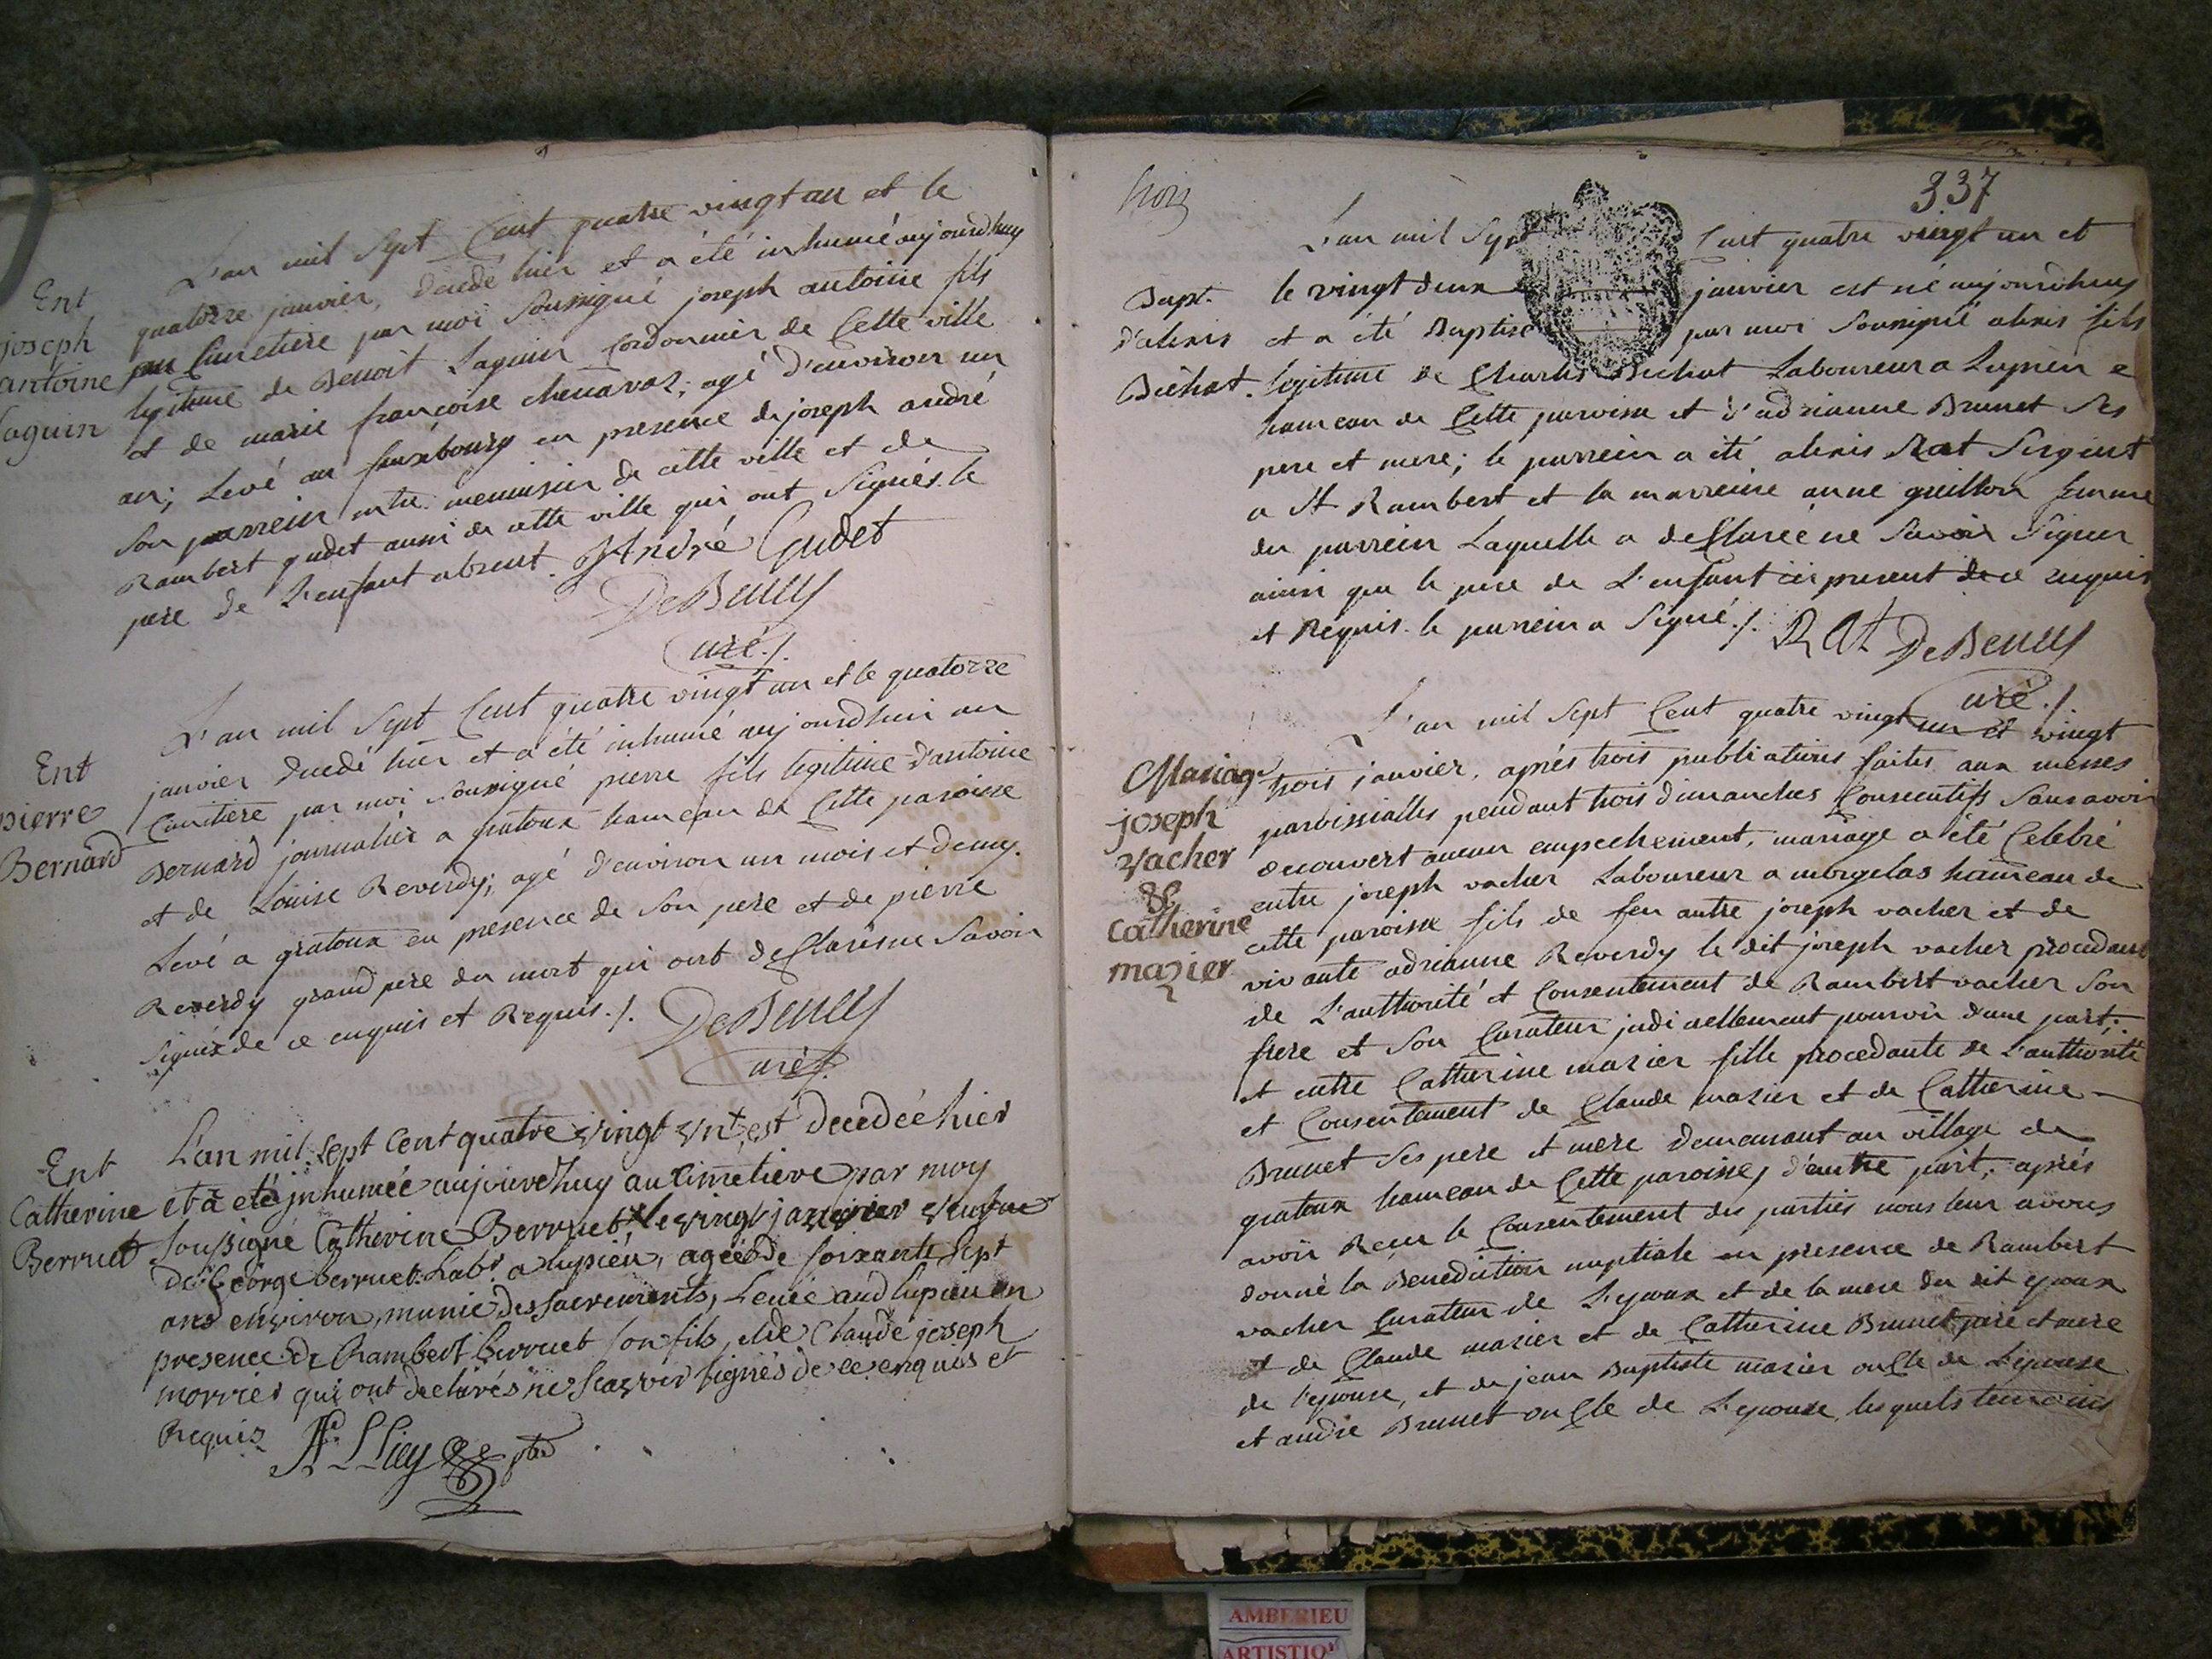 L'an mil Sept Cent quatre vingt un et le
Ent
joseph
antoine
Laguin
quatorze janvier, decedé hier et a été inhumé aujourdhuy
au Cimetiere par moi soussigné joseph antoine fils
legitime de Benoit Laguin Cordonnier de Cette ville
et de marie françoise chenavaz; agé d'environ un
an; Levé au fauxbourg en presence de joseph andré
son parrein mtre menuisier de cette ville et de
Rambert gudet aussi de cette ville qui ont Signés. le
pere de L'enfant absent. J André Gudet
DeBeney
Curé./.
L'an mil Sept Cent quatre vingt un et le quatorze
Ent
pierre
Bernard
janvier decedé hier et a été inhumé aujourdhui au
Cimitiere par moi soussigné pierre fils legitime d'antoine
Bernard journalier a gratoux hameau de Cette paroisse
et de Louise Reverdy; agé d'environ un mois et demy.
Levé a gratoux en presence de son pere et de pierre
Reverdy grand pere du mort qui ont deClarésne Savoir
Signér de ce enquis et Requis./. DeBeney
Curé./.
Ent
Catherine
Berruet
L'an mil sept cent quatre vingt vnt, est decedée hier
et a eté jnhumée aujourd'huy au cimetiere par moy
soussigné Catherine Berruet, le vingt janvier veufue
de George berruet Labr a lupieu, agée de soixante sept
ans environ, munie des sacrements, Leuée aud lupieu en
presence de Rambert berruet son fils, et de Claude joseph
morrier qui ont declarés ne scavoir signés de ce enquis et
Requis
trois
337
L'an mil Sept Cent quatre vingt un et
Bapt.
d'alexis
Bichat.
le vingt deux janvier est né aujourdhuy
et a été Baptisé par moi Soussigné alexis fils
legitime de Charles Bichat Laboureur a Lupieu
hameau de Cette paroisse et d'adrianne Brunet Ses
pere et mere; le parrein a été alexis Rat Sergent
a St Rambert et la marreine anne guillon femme
du parrein Laquelle a deClarée ne Savoir Signer
ainsi que le pere de L'enfant ici present de ce enquis
et Requis. le parrein a Signé./. RAt DeBeney
Curé./.
L'an mil Sept Cent quatre vingt un et vingt
Mariage
joseph
vacher
&
catherine
mazier
trois janvier, aprés trois publications faites aux messes
paroissialles pendant trois dimanches Consecutifs Sans avoir
decouvert aucun empechement, mariage a été Celebré
entre joseph vacher Laboureur a morgelas hameau de
cette paroisse fils de feu autre joseph vacher et de
vivante adrianne Reverdy le dit joseph vacher procedant
de L'authorité et Consentement de Rambert vacher Son
frere et Son Curateur judiciellement pourvù d'une part;
et entre Catherine mazier fille procedante de L'authorité
et Consentement de Claude mazier et de Catherine
Brunet Ses pere et mere demeurant au village de
gratoux hameau de Cette paroisse, d'autre part; aprés
avoir Recu le Consentement des parties nous leur avons
donné la Benediction nuptiale en presence de Rambert
vacher Curateur de L'epoux et de la mere du dit epoux
et de Claude mazier et de Catherine Brunet pere et mere
de l'epouse, et de jean Baptiste mazier onCle de L'epouse
et andré Brunet onCle de L'epouse, lesquels temoins
AMBERIEU
ARTISTIQ